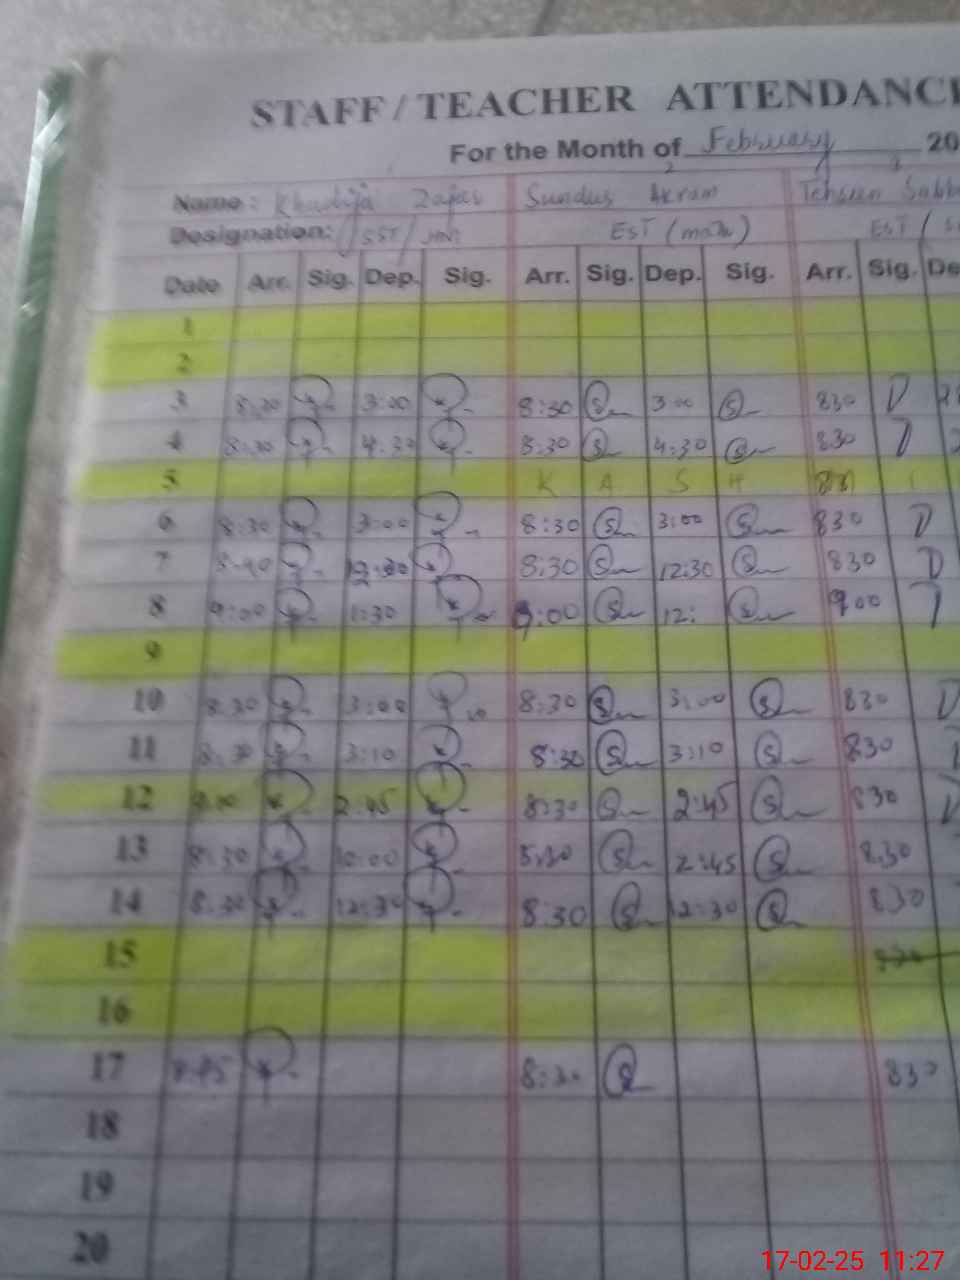 STAFF / TEACHER ATTENDANC
For the Month of February 20
Name: Khadija Zafar Sundus Akram Tehseen
Designation: SST / EST (math) EST /
Date Arr. Sig. Dep. Sig. Arr. Sig. Dep. Sig. Arr. Sig. De
1
2
3 8:30 3:00 8:30 3:00 830
4 8:30 4:30 8:30 4:30 830
5 K A S H
6 8:30 3:00 8:30 3:00 830
7 12:30 8:30 12:30 830
8 9:00 1:30 9:00 12: 900
9
10 8:30 3:00 8:30 3:00 830
11 8:30 3:10 8:30 3:10 830
12 2:45 8:30 2:45 830
13 8:30 10:00 8:30 2:45 8:30
14 8:30 12:30 8:30 12:30 830
15
16
17 8:30 830
18
19
20
17-02-25 11:27